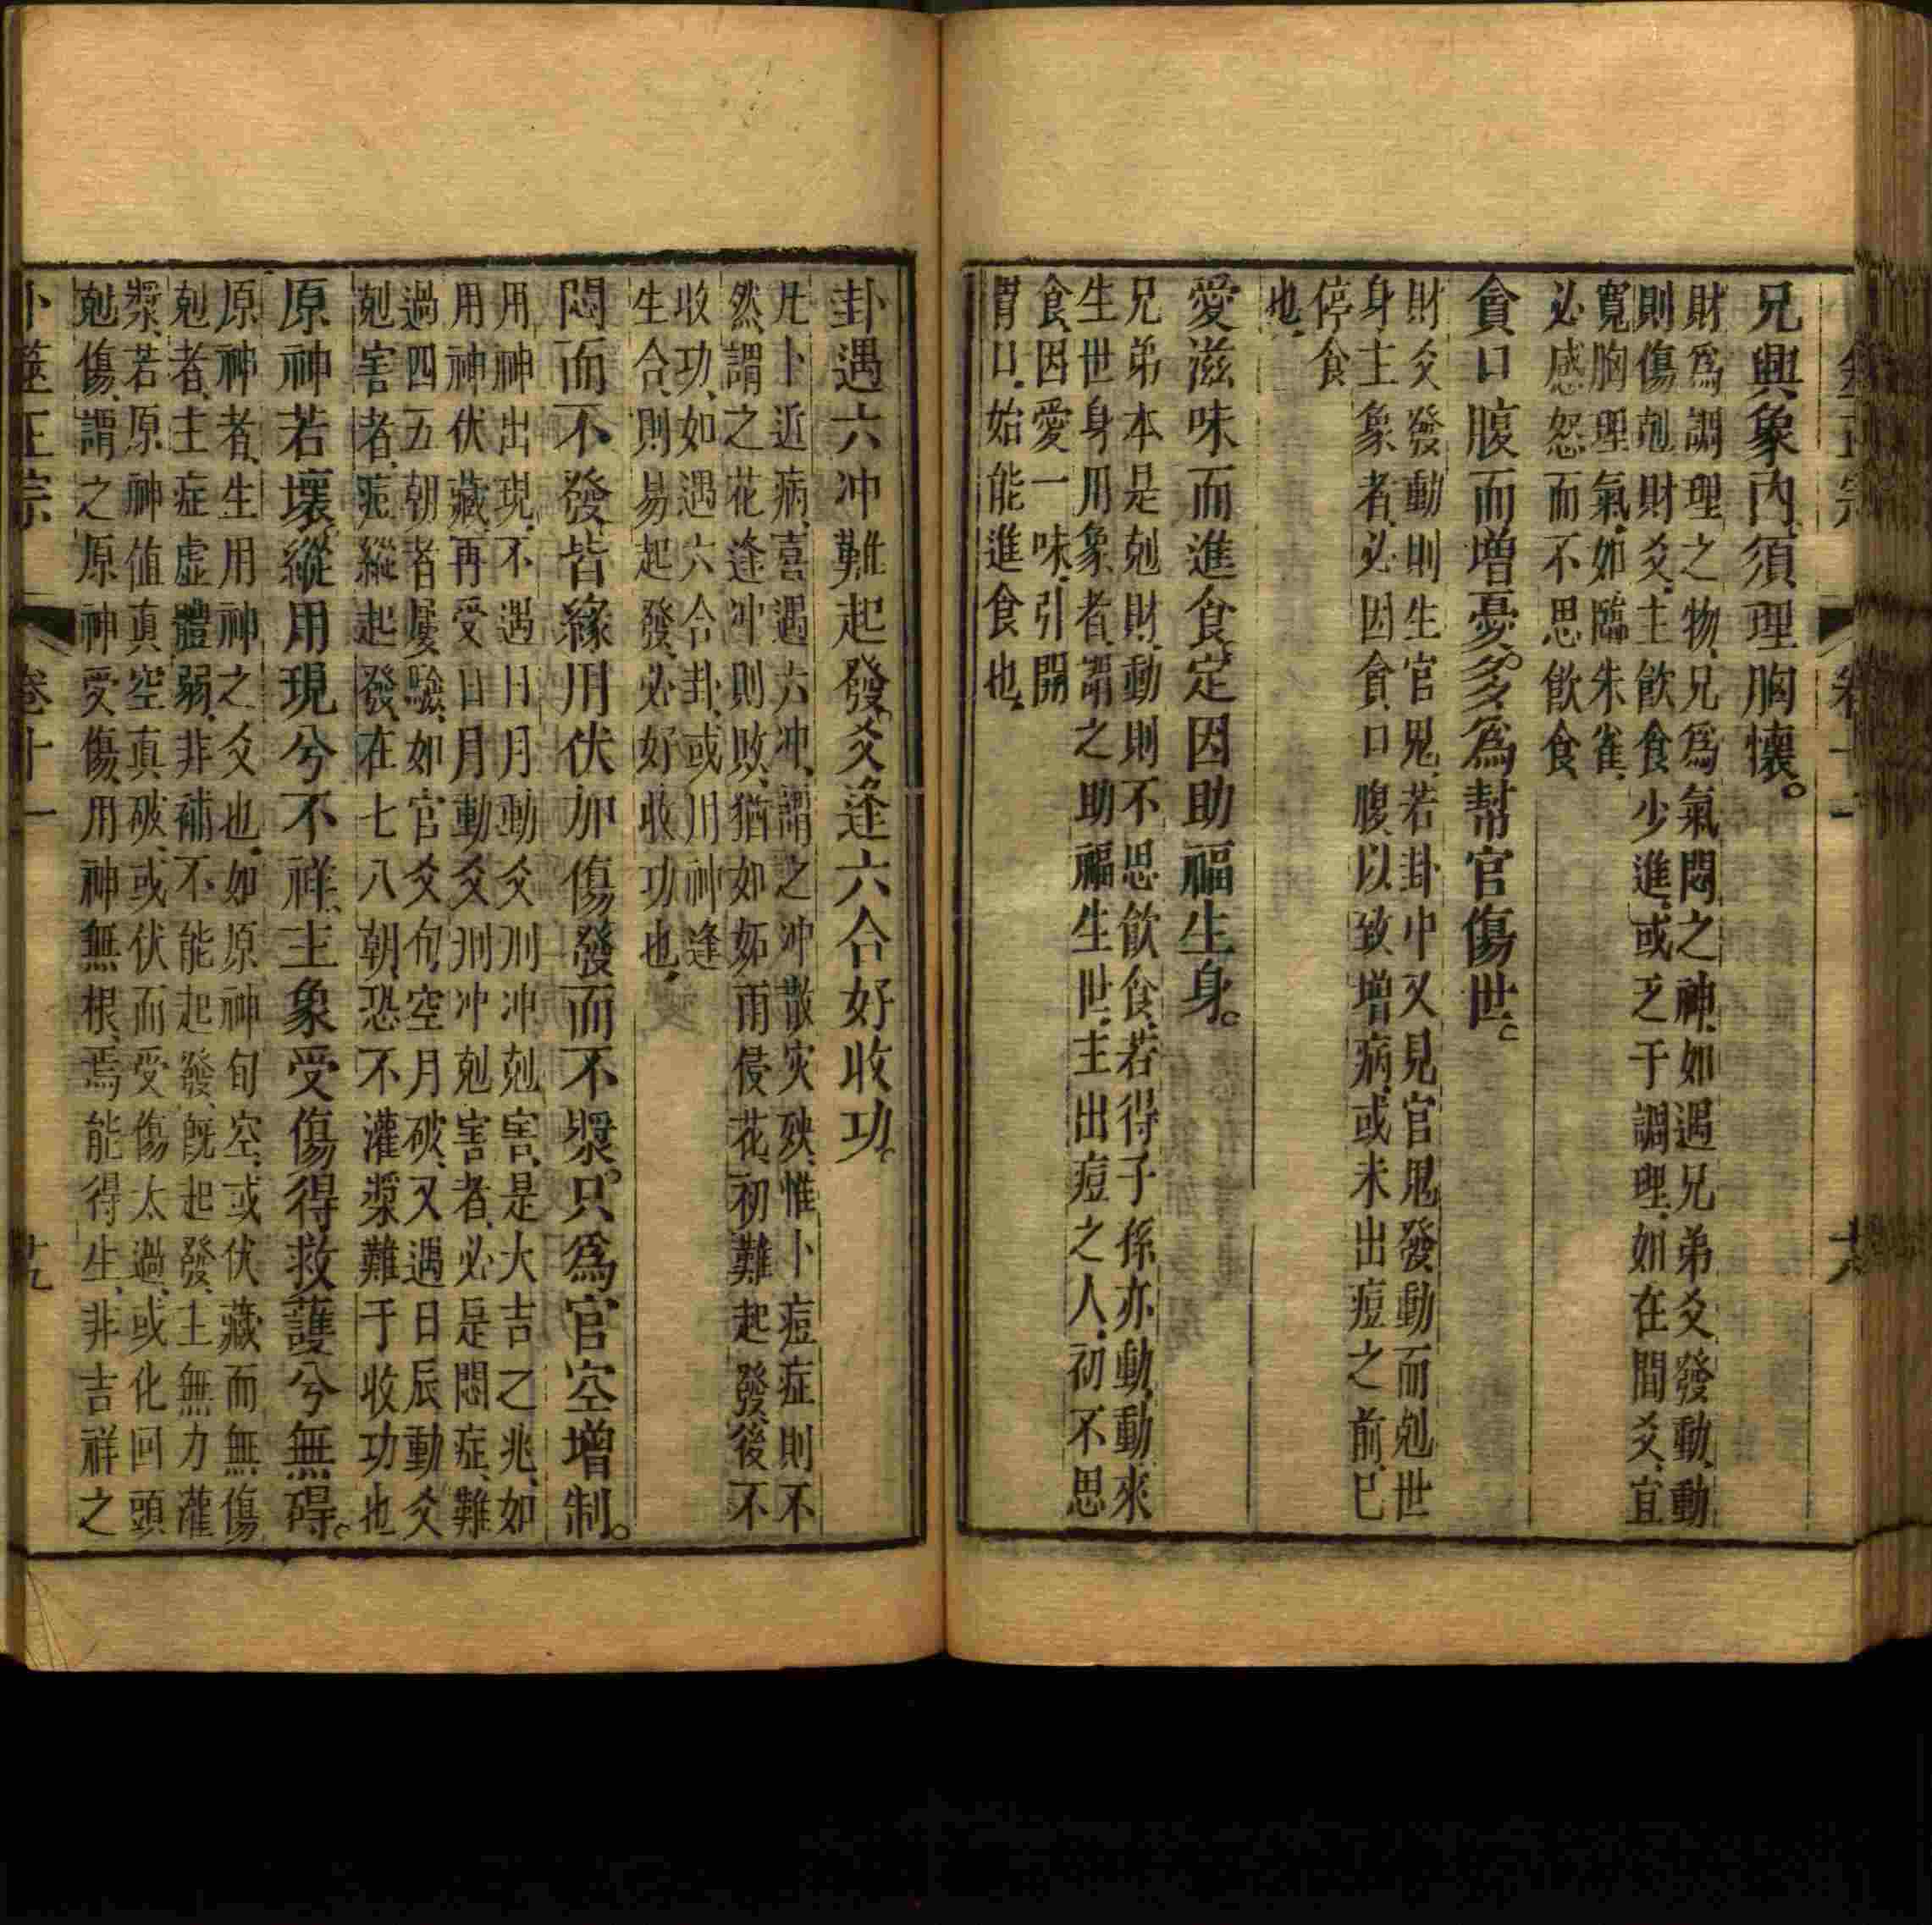 兄興象內、須理胸懷。
財爲調理之物、兄爲氣悶之神、如遇兄弟爻發動、動
則傷剋財爻、主飲食少進、或乏于調理、如在間爻、宜
寬胸理氣、如臨朱雀、
必感怒而不思飲食、
貪口腹而增憂。多爲幫官傷世。
財爻發動則生官鬼、若卦中又見官鬼發動而剋世
身主象者、必因貪口腹、以致增病、或未出痘之前、已
停食
也、
愛滋味而進食、定因助福生身。
兄弟本是剋財、動則不思飲食、若得子孫亦動、動來
生世身用象者、謂之助福生世、主出痘之人、初不思
食、因愛一味、引開
胃口、始能進食也、
卦遇六冲難起發。爻逢六合好收功。
凡卜近病、喜遇六冲、謂之冲散灾殃、惟卜痘症則不
然、謂之花逢冲則敗、猶如妬雨侵花、初難起發、後不
收功、如遇六合卦、或用神逢
生合、則易起發、必好收功也、
悶而不發、皆緣用伏加傷發而不漿。只爲官空增制。
用神出現、不遇日月動爻刑冲剋害、是大吉之兆、如
用神伏藏、再受日月動爻刑冲剋害者、必是悶症、難
過四五朝者屢驗、如官爻旬空月破、又遇日辰動爻
剋害者、痘縱起發、在七八朝、恐不灌漿難于收功也
原神若壞、縱用現兮不祥、主象受傷得救護兮無碍。
原神者、生用神之爻也、如原神旬空、或伏藏而無傷
剋者、主症虛體弱、非補不能起發、既起發、主無力灌
漿、若原神值真空真破、或伏而受傷太過、或化回頭
剋傷、謂之原神受傷、用神無根、焉能得生、非吉祥之
卜筮正宗　卷十一　十九